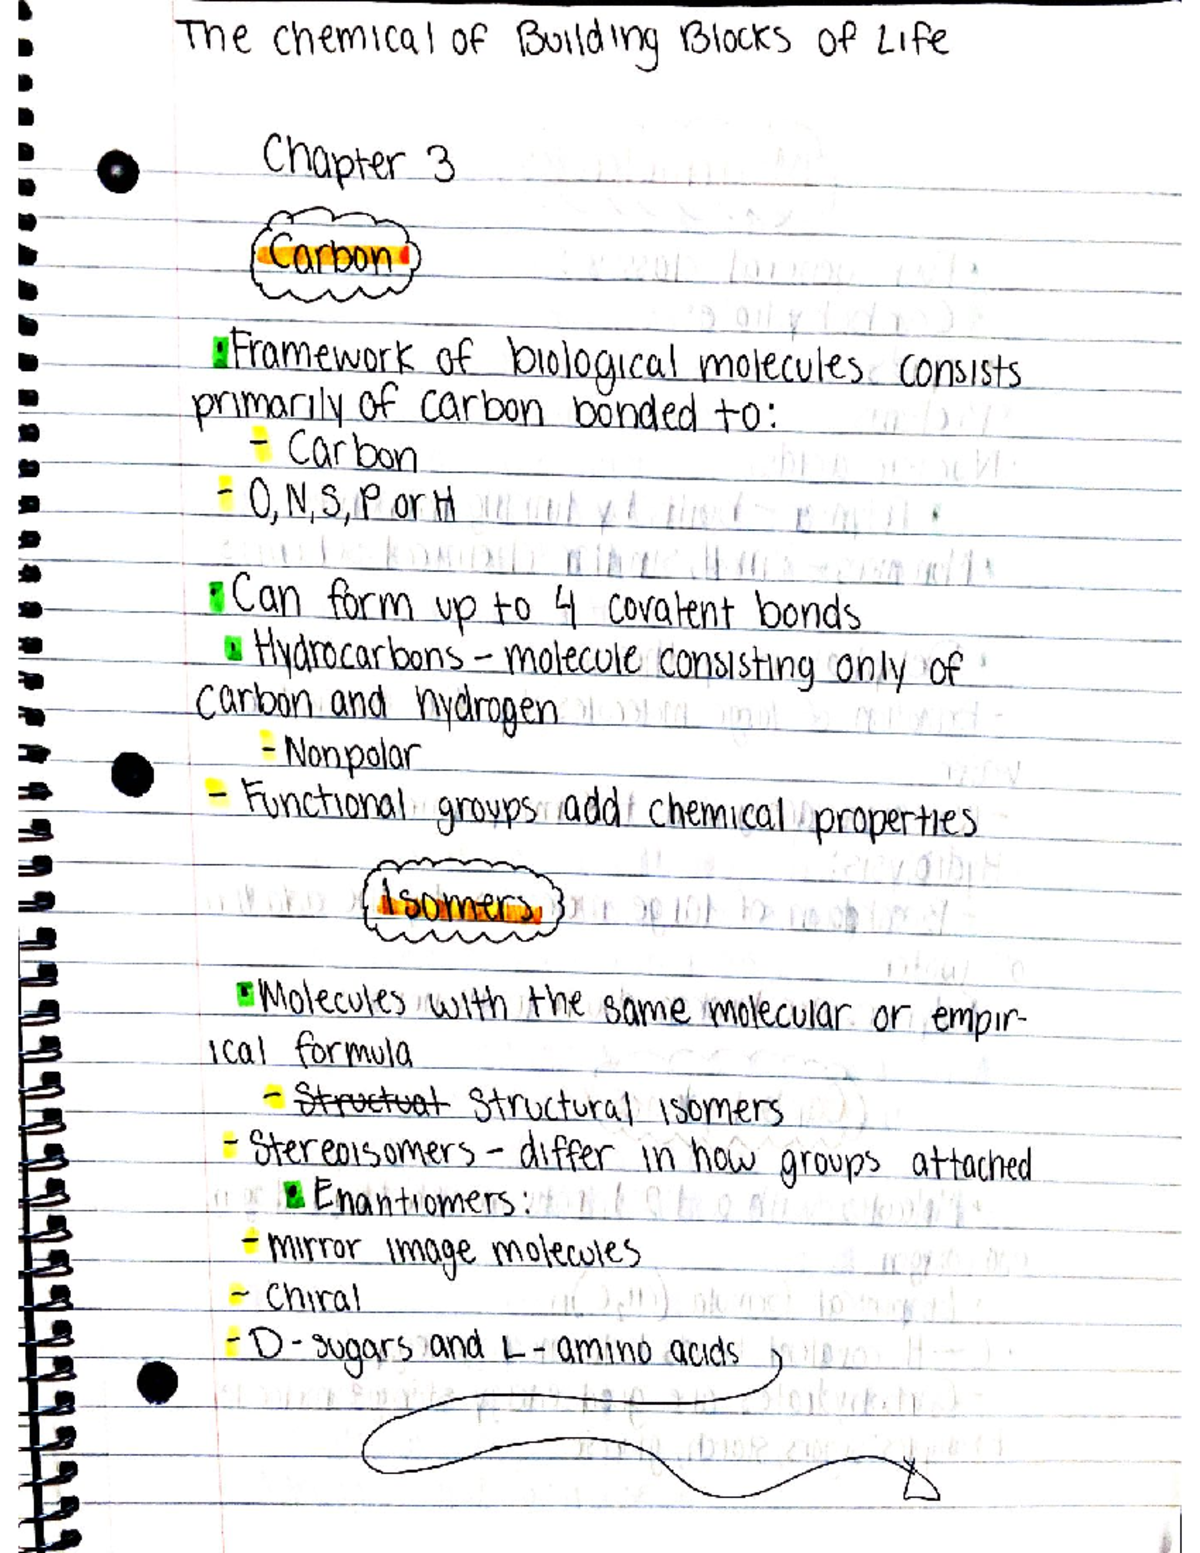 The chemical of Building Blocks of Life
Chapter 3
Carbon
▪Framework of biological molecules consists
primarily of carbon bonded to:
- Carbon
- O, N, S, P or H
▪Can form up to 4 covalent bonds
▪Hydrocarbons - molecule consisting only of
carbon and hydrogen
- Nonpolar
- Functional groups add chemical properties
Isomers
▪Molecules with the same molecular or empir-
ical formula
- Structual Structural isomers
- Stereoisomers - differ in how groups attached
▪Enantiomers:
- mirror image molecules
- chiral
- D-sugars and L-amino acids